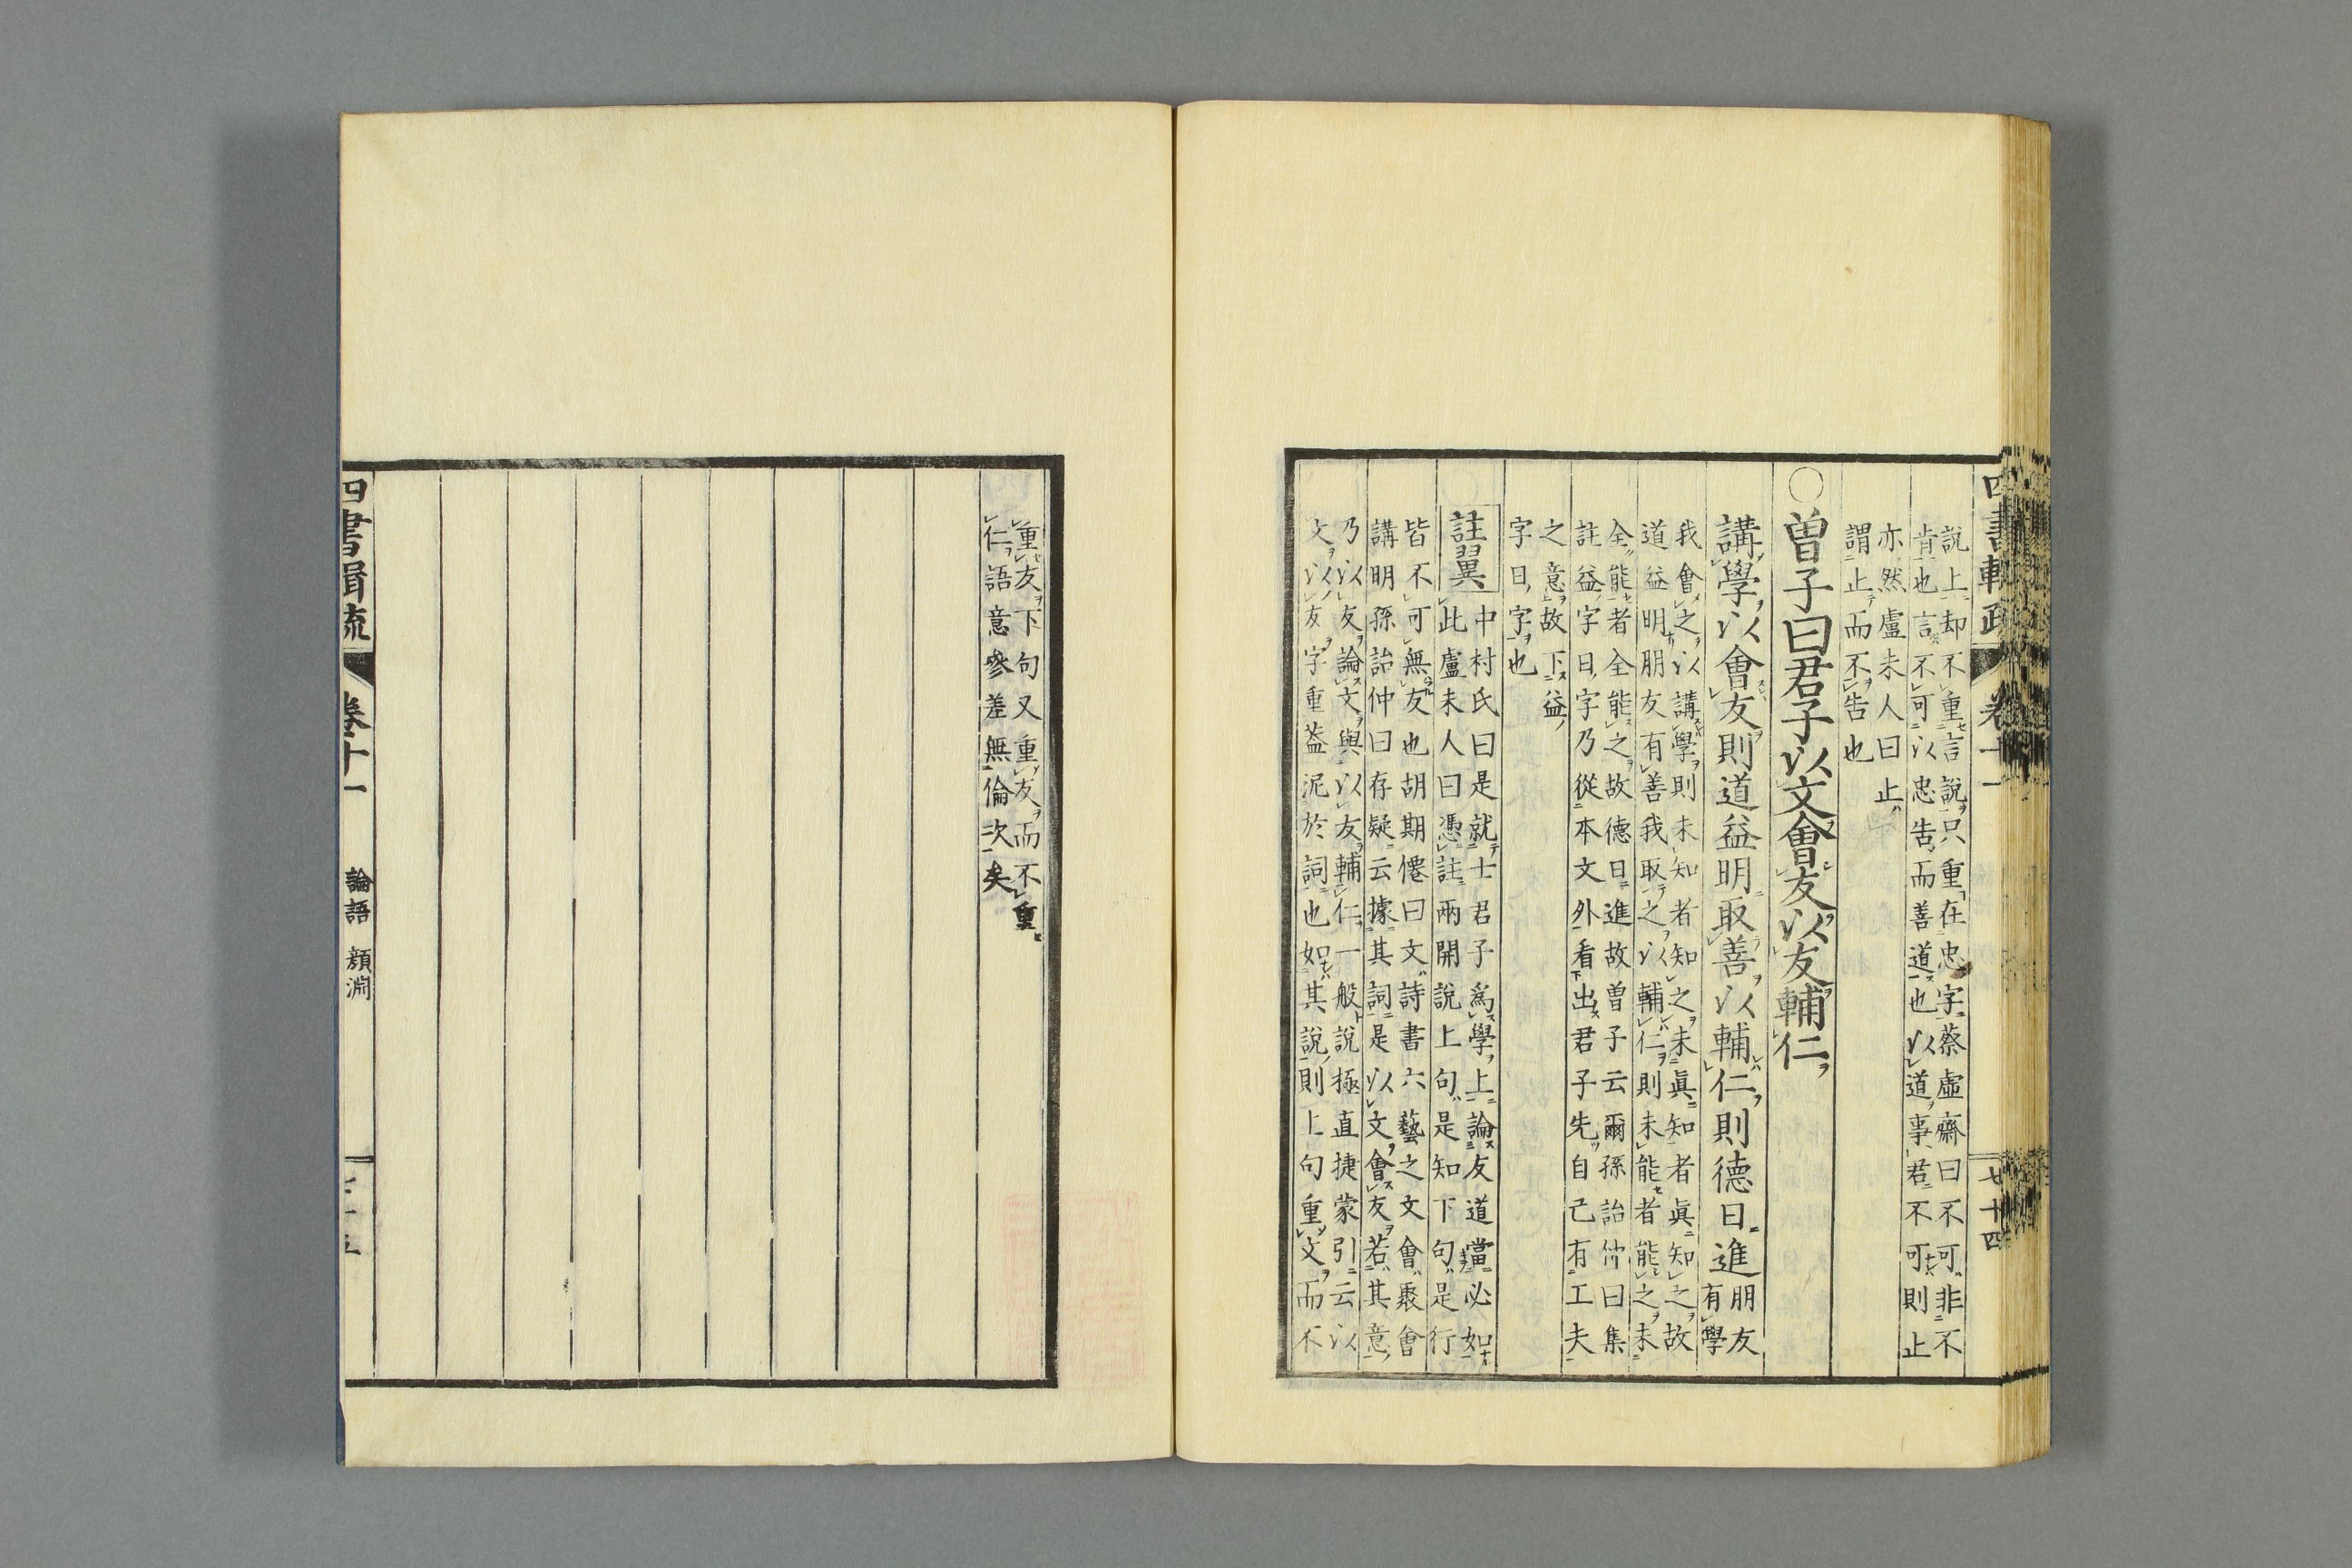 說上却不重言說只重在忠字蔡虛齋曰不可非不
肯也言不可以忠告而善道也以道事君不可則止
亦然盧未人曰止
謂止而不告也
○曾子曰君子以文會友以友輔仁
講學以會友則道益明取善以輔仁則德日進
朋友
有學
我會之以講學則未知者知之未眞知者眞知之故
道益明朋友有善我取之以輔仁則未能者能之未
全能者全能之故德日進故曽子云爾孫詒仲曰集
註益字日字乃從本文外看出君子先自己有工夫
之意故下益
字日字也
註翼
中村氏曰是就士君子爲學上論友道當必如
此盧未人曰憑註兩開說上句是知下句是行
皆不可無友也胡期僊曰文詩書六藝之文會聚會
講明孫詒仲曰存疑云據其詞是以文會友若其意
乃以友論文與以友輔仁一般說極直捷蒙引云以
文以友字重葢泥於詞也如其說則上句重文而不
四書輯疏 卷十一 七十四
重友下句又重友而不重
仁語意參差無倫次矣
四書輯疏 卷十一 論語 顏淵